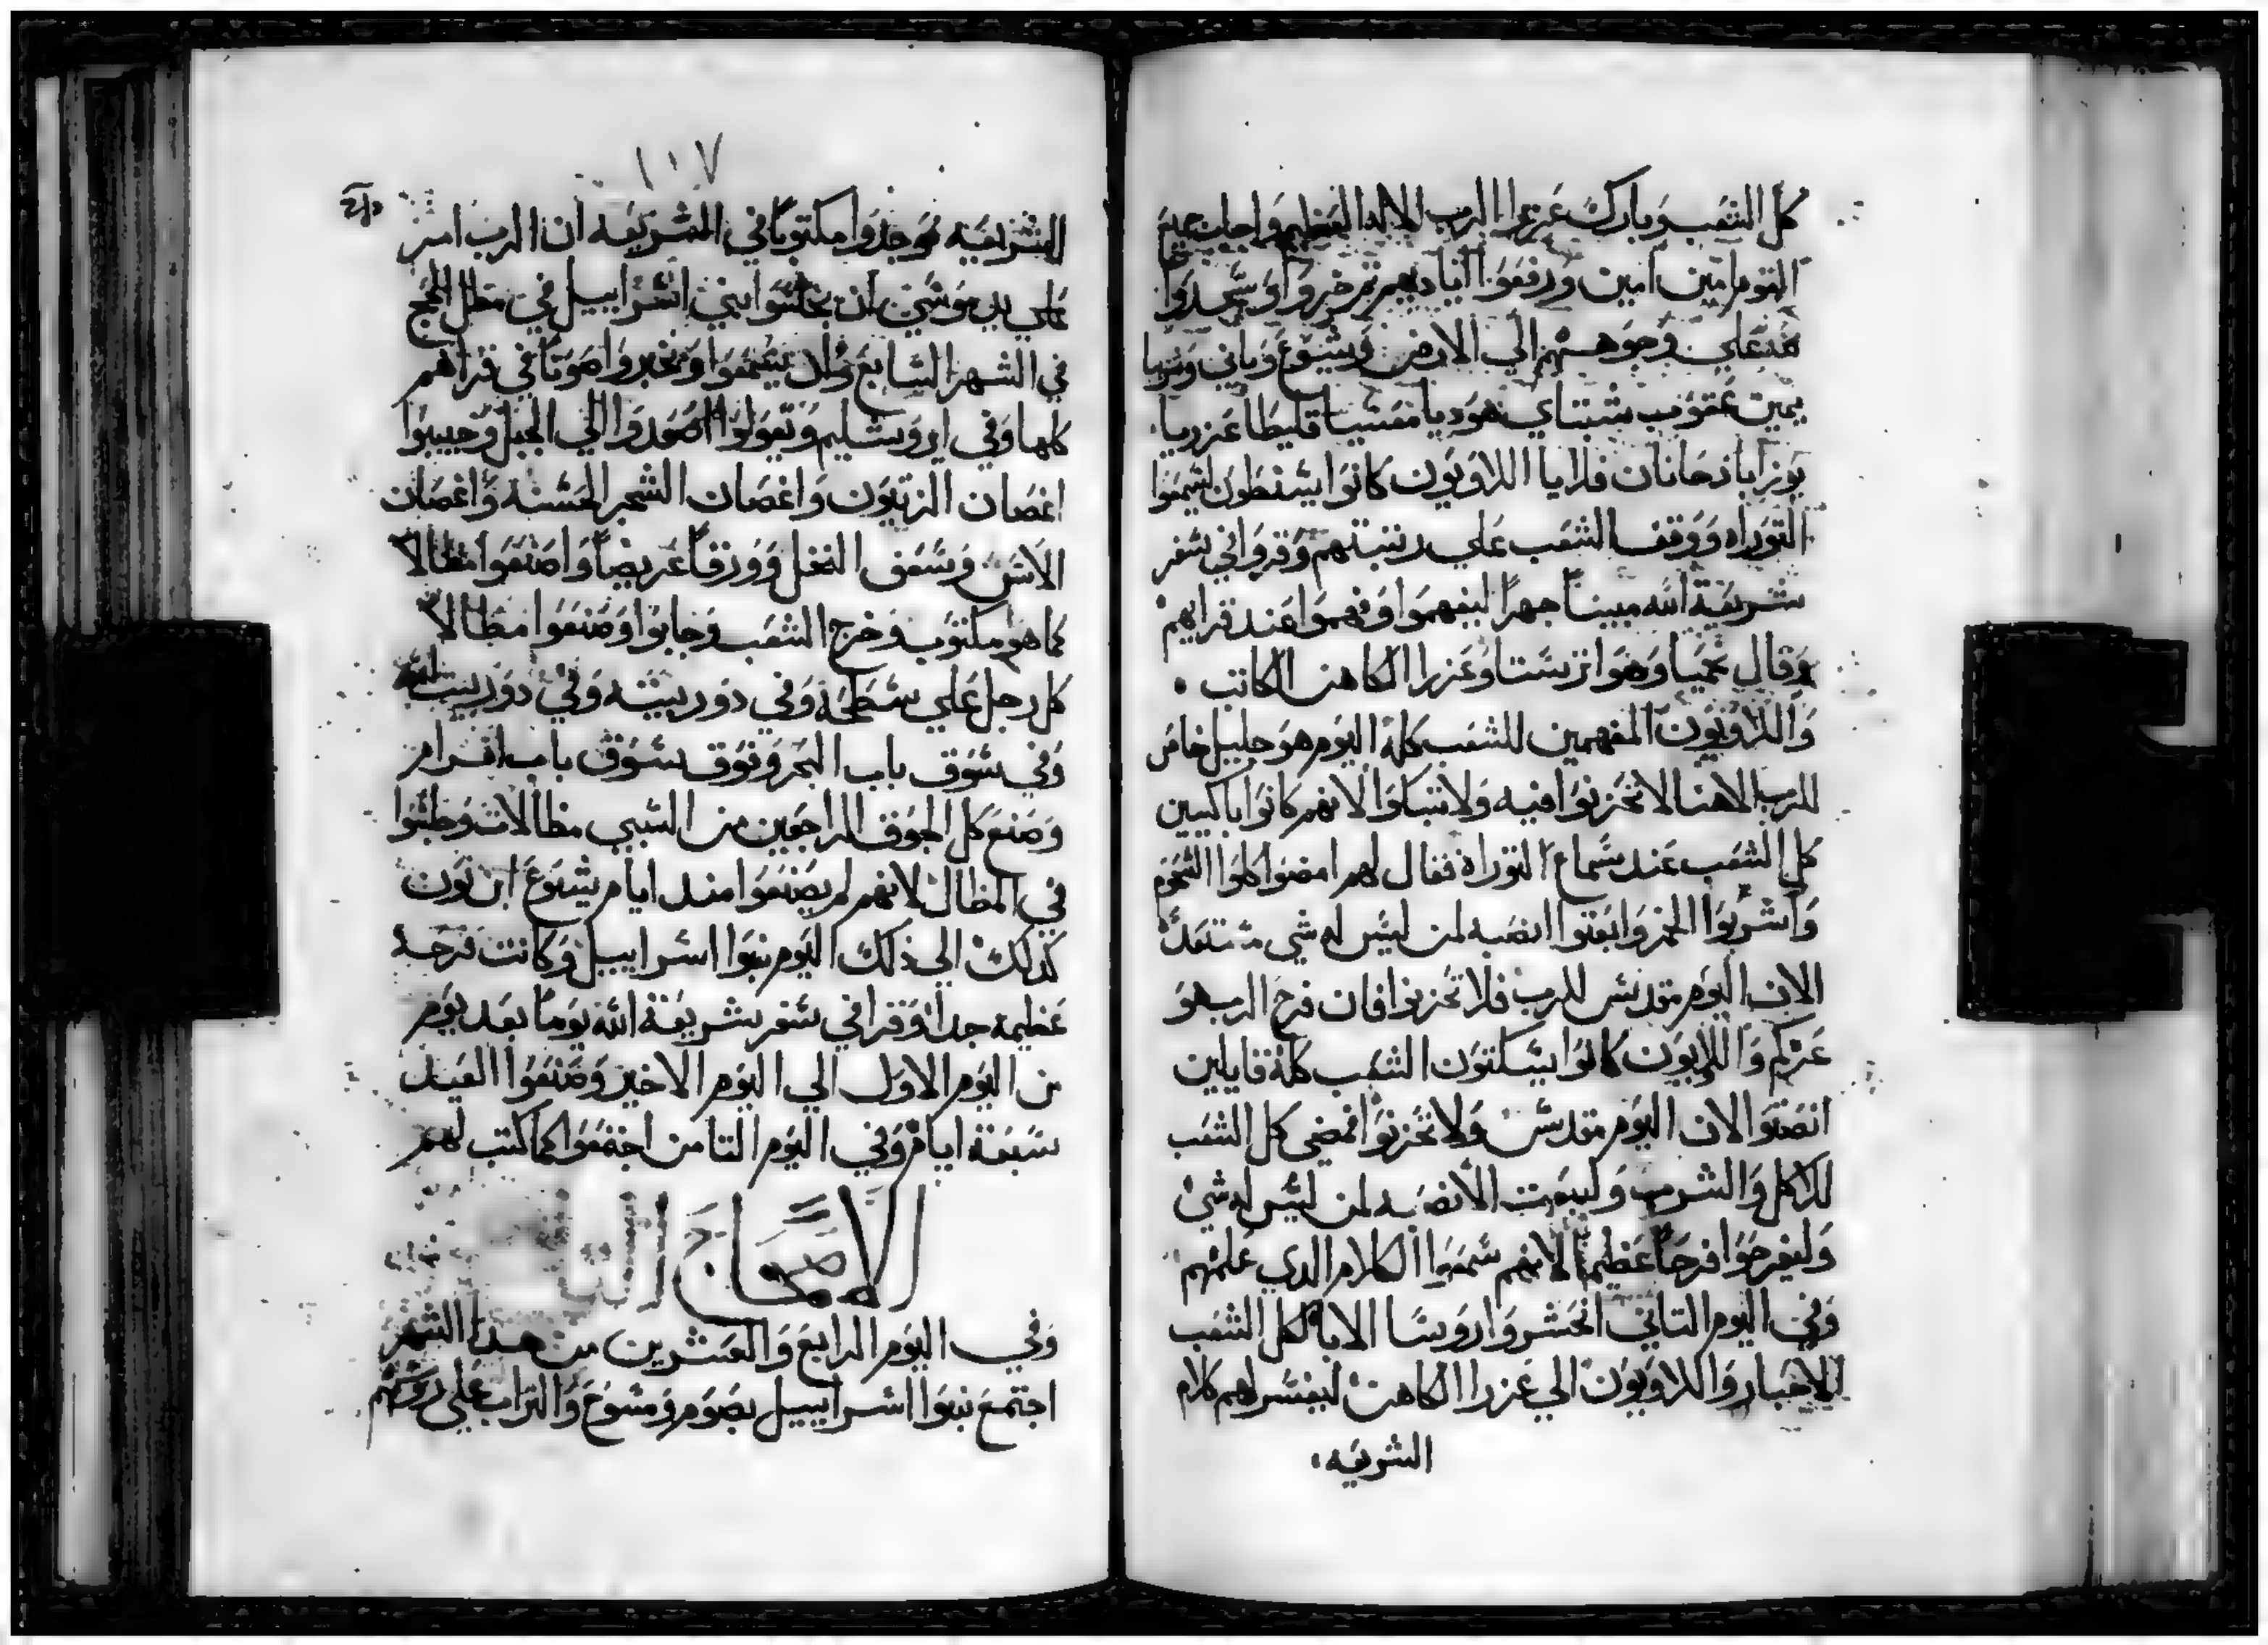 كل الشعب وبارك عزرا الرب الاله العظيم واجاب جميع
القوم امين امين ورفعوا اياديهم ثم خروا وسجدوا
على وجوههم الي الارض ويشوع وباني وسربيا
يمين عقوب شبتاي هوديا مفسيا قليطا عزريا
يوزاباد حانان فلايا اللاويون كانوا يسنطون ليسمعوا
التوراه ووقف الشعب علي رتبتهم وقروا في سفر
شريعة الله مبيناً جهراً ليفهموا وفهموا عند قرايهم
وقال نحميا وهو اترستا وعزرا الكاهن الكاتب
واللاويون المفهمين للشعب كلة اليوم هو جليل خاص
للرب الاهنا لا تحزنوا فيه ولا تبكوا لانهم كانوا باكيين
كل الشعب عند سماع التوراة فقال لهم امضوا كلوا الشحوم
واشربوا الخمر وابعتوا انصبه لمن ليس له شي مستعد
الان اليوم مقدس للرب فلا تحزنوا فان فرح الرب هو
عزكم واللاويون كانوا يسكتون الشعب كلة قايلين
انصتوا الان اليوم مقدس ولا تحزنوا فمضي كل الشعب
للاكل والشرب وليبعت الانصبه لمن ليس له شي
وليفرحوا فرحاً عظيماً لانهم سمعوا الكلام الدي علمهم
وفي اليوم التاني انحشروا روسا الابا لكل الشعب
الاحبار واللاويون الي عزرا الكاهن ليفسر لهم كلام
الشريعه
١١٧
الشريعه فوجدوا مكتوباً في الشريعه ان الرب امر
علي يدي موسي ان يجلسوا بني اسراييل في مظل الحج
في الشهر السابع وان يسمعوا ويخبروا صوتاً في قراهم
كلها وفي اروسليم ويقولوا اصعدوا الي الجبل وجيبوا
اغصان الزيتون واغصان الشجر الحسنه واغصان
الاس وسعف النخل وورقاً عريضاً واصنعوا مظالا
كما هو مكتوب وخرج الشعب وجابوا وصنعوا مظالا
كل رجل علي سطحه وفي دور بيته وفي دور بيت الله
وفي سوق باب البحر وفوق سوق باب افرام
وصنع كل الجوق الراجعين من السبي مظالات وجلسوا
في المظال لانهم لم يصنعوا مند ايام يشوع ابن نون
كدلك الي ذلك اليوم بنوا اسراييل وكانت فرحة
عظيمة جداً وقرا في سفر شريعة الله يوماً بعد يوم
من اليوم الاول الي اليوم الاخير وصنعوا العيد
سبعة ايام وفي اليوم التامن اجتمعوا كما كتب لهم
الاصحاح
وفي اليوم الرابع والعشرين من هدا الشهر
اجتمع بنوا اسراييل بصوم ومسوح والتراب علي روسهم